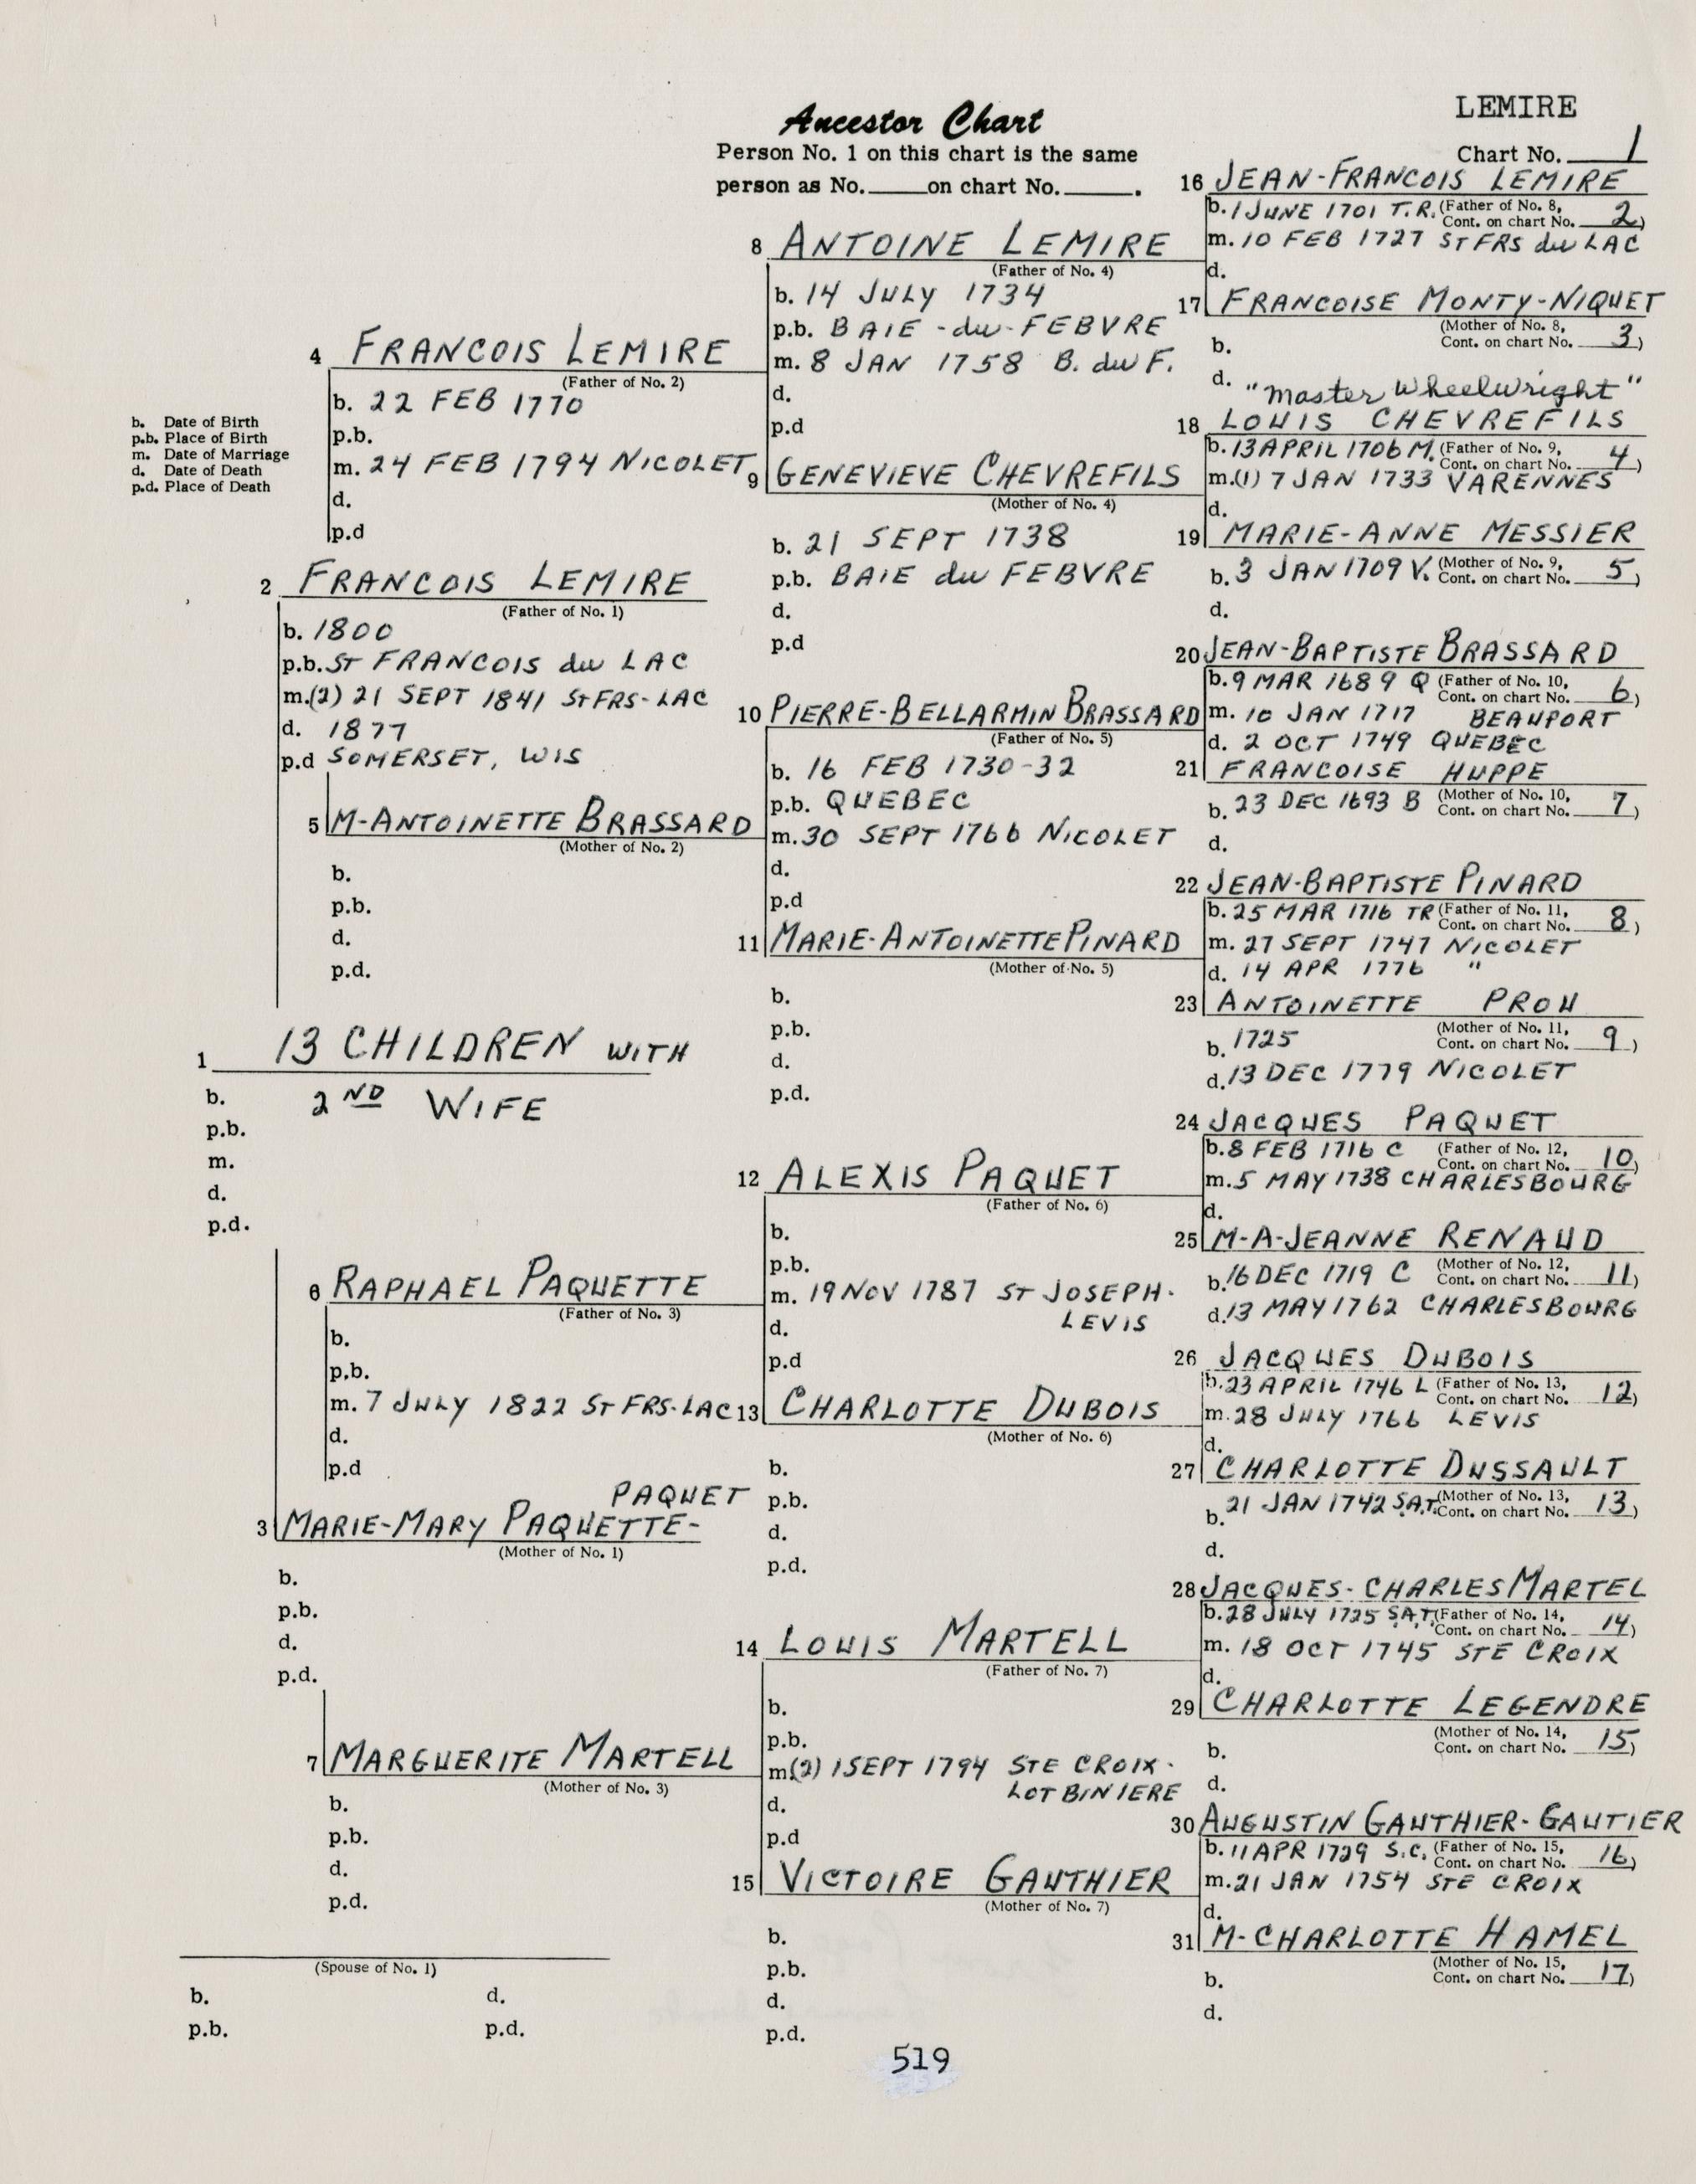 LEMIRE
Ancestor Chart
Person No. 1 on this chart is the same
person as No.____on chart No.____.
Chart No. 1
b. Date of Birth
p.b. Place of Birth
m. Date of Marriage
d. Date of Death
p.d. Place of Death
1 13 CHILDREN WITH
b. 2ND WIFE
p.b.
m.
d.
p.d.
2 FRANCOIS LEMIRE
(Father of No. 1)
b. 1800
p.b. ST FRANCOIS du LAC
m.(2) 21 SEPT 1841 ST FRS-LAC
d. 1877
p.d SOMERSET, WIS
PAQUET
3 MARIE-MARY PAQUETTE-
(Mother of No. 1)
b.
p.b.
d.
p.d.
4 FRANCOIS LEMIRE
(Father of No. 2)
b. 22 FEB 1770
p.b.
m. 24 FEB 1794 NICOLET
d.
p.d
5 M-ANTOINETTE BRASSARD
(Mother of No. 2)
b.
p.b.
d.
p.d.
6 RAPHAEL PAQUETTE
(Father of No. 3)
b.
p.b.
m. 7 JULY 1822 ST FRS-LAC
d.
p.d
7 MARGUERITE MARTELL
(Mother of No. 3)
b.
p.b.
d.
p.d.
(Spouse of No. 1)
b. d.
p.b. p.d.
8 ANTOINE LEMIRE
(Father of No. 4)
b. 14 JULY 1734
p.b. BAIE-du-FEBVRE
m. 8 JAN 1758 B. du F.
d.
p.d
9 GENEVIEVE CHEVREFILS
(Mother of No. 4)
b. 21 SEPT 1738
p.b. BAIE du FEBVRE
d.
p.d
10 PIERRE-BELLARMIN BRASSARD
(Father of No. 5)
b. 16 FEB 1730-32
p.b. QUEBEC
m. 30 SEPT 1766 NICOLET
d.
p.d
11 MARIE-ANTOINETTE PINARD
(Mother of No. 5)
b.
p.b.
d.
p.d.
12 ALEXIS PAQUET
(Father of No. 6)
b.
p.b.
m. 19 NOV 1787 ST JOSEPH-
LEVIS
d.
p.d
13 CHARLOTTE DUBOIS
(Mother of No. 6)
b.
p.b.
d.
p.d.
14 LOUIS MARTELL
(Father of No. 7)
b.
p.b.
m(2) 1 SEPT 1794 STE CROIX-
LOTBINIERE
d.
p.d
15 VICTOIRE GAUTHIER
(Mother of No. 7)
b.
p.b.
d.
p.d.
16 JEAN-FRANCOIS LEMIRE
b. 1 JUNE 1701 T.R. (Father of No. 8,
Cont. on chart No. 2)
m. 10 FEB 1727 ST FRS du LAC
d.
17 FRANCOISE MONTY-NIQUET
(Mother of No. 8,
Cont. on chart No. 3)
b.
d. "Master Wheelwright"
18 LOUIS CHEVREFILS
b. 13 APRIL 1706 M. (Father of No. 9,
Cont. on chart No. 4)
m.(1) 7 JAN 1733 VARENNES
d.
19 MARIE-ANNE MESSIER
b. 3 JAN 1709 V. (Mother of No. 9,
Cont. on chart No. 5)
d.
20 JEAN-BAPTISTE BRASSARD
b. 9 MAR 1689 Q (Father of No. 10,
Cont. on chart No. 6)
m. 10 JAN 1717 BEAUPORT
d. 2 OCT 1749 QUEBEC
21 FRANCOISE HUPPE
b. 23 DEC 1693 B (Mother of No. 10,
Cont. on chart No. 7)
d.
22 JEAN-BAPTISTE PINARD
b. 25 MAR 1716 TR (Father of No. 11,
Cont. on chart No. 8)
m. 27 SEPT 1747 NICOLET
d. 14 APR 1776 "
23 ANTOINETTE PROU
b. 1725 (Mother of No. 11,
Cont. on chart No. 9)
d. 13 DEC 1779 NICOLET
24 JACQUES PAQUET
b. 8 FEB 1716 C (Father of No. 12,
Cont. on chart No. 10)
m. 5 MAY 1738 CHARLESBOURG
d.
25 M-A-JEANNE RENAUD
b. 16 DEC 1719 C (Mother of No. 12,
Cont. on chart No. 11)
d. 13 MAY 1762 CHARLESBOURG
26 JACQUES DUBOIS
b. 23 APRIL 1746 L (Father of No. 13,
Cont. on chart No. 12)
m. 28 JULY 1766 LEVIS
d.
27 CHARLOTTE DUSSAULT
b. 21 JAN 1742 S.A.T. (Mother of No. 13,
Cont. on chart No. 13)
d.
28 JACQUES-CHARLES MARTEL
b. 28 JULY 1725 S.A.T. (Father of No. 14,
Cont. on chart No. 14)
m. 18 OCT 1745 STE CROIX
d.
29 CHARLOTTE LEGENDRE
(Mother of No. 14,
Cont. on chart No. 15)
b.
d.
30 AUGUSTIN GAUTHIER-GAUTIER
b. 11 APR 1729 S.C. (Father of No. 15,
Cont. on chart No. 16)
m. 21 JAN 1754 STE CROIX
d.
31 M-CHARLOTTE HAMEL
(Mother of No. 15,
Cont. on chart No. 17)
b.
d.
519